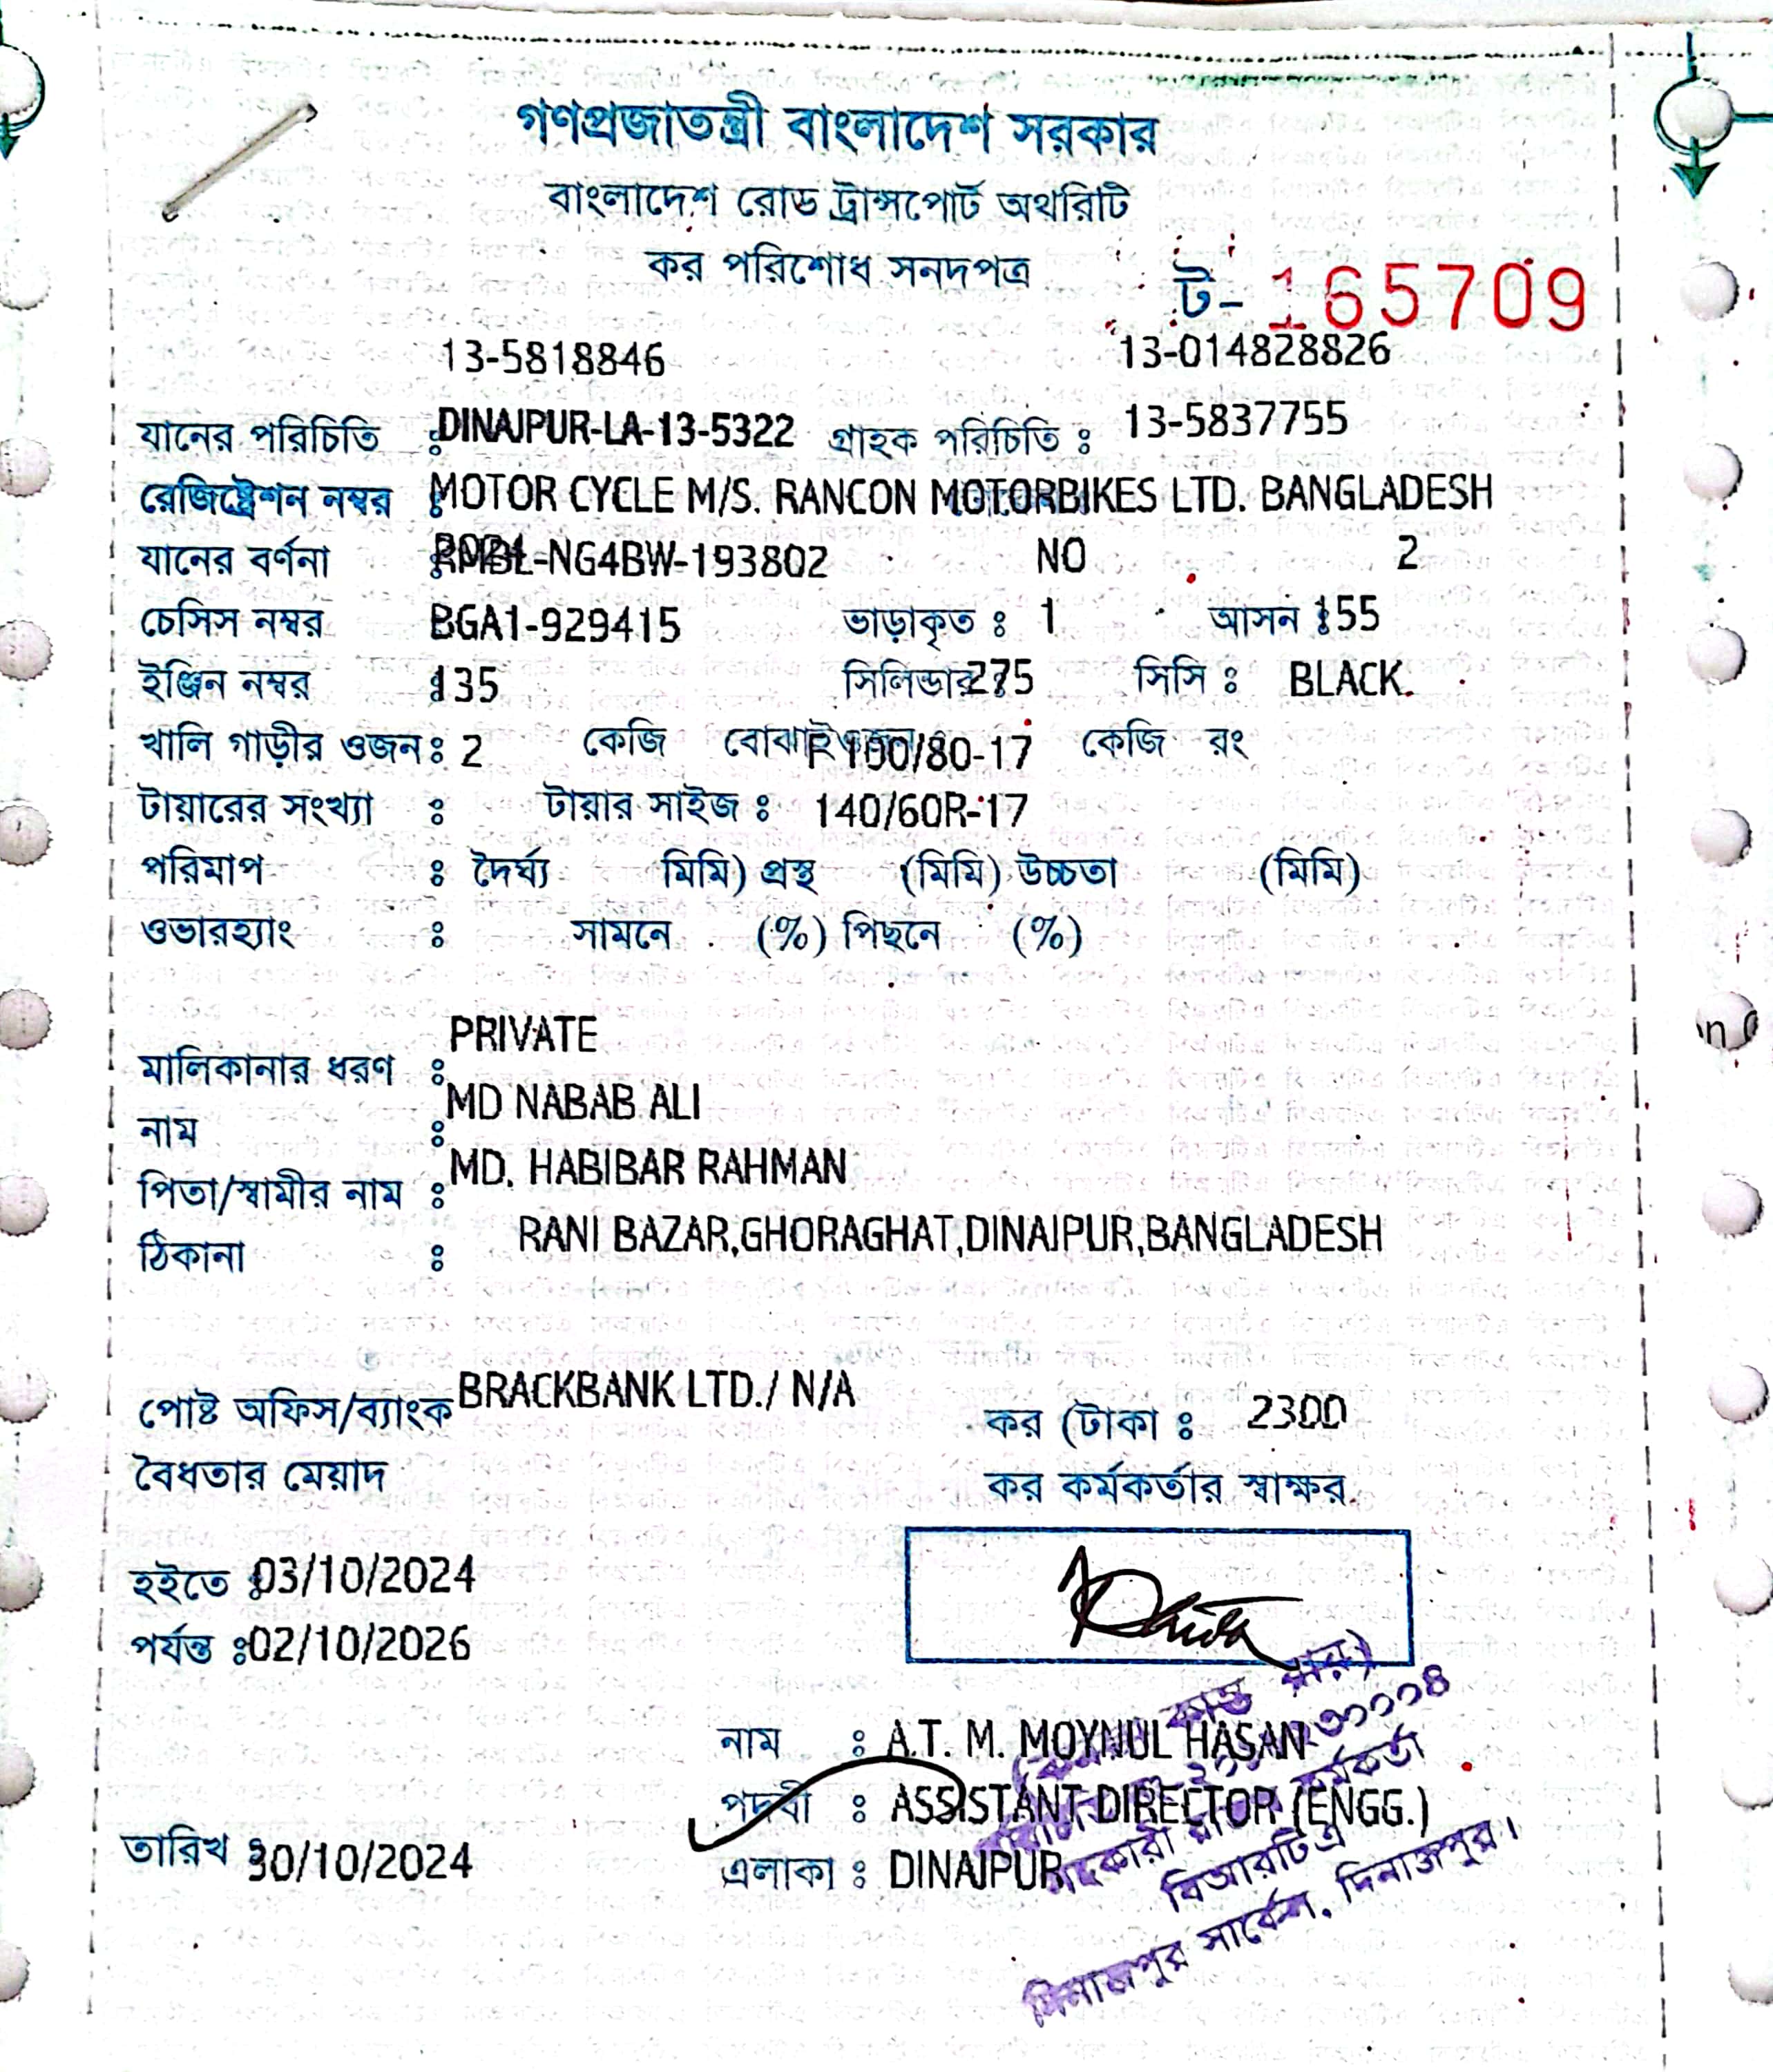 গণপ্রজাতন্ত্রী বাংলাদেশ সরকার
বাংলাদেশ রোড ট্রান্সপোর্ট অথরিটি
কর পরিশোধ সনদপত্র
ট- 165709
13-5818846 13-014828826
যানের পরিচিতি : DINAJPUR-LA-13-5322 গ্রাহক পরিচিতি : 13-5837755
রেজিষ্ট্রেশন নম্বর : MOTOR CYCLE M/S. RANCON MOTORBIKES LTD. BANGLADESH
যানের বর্ণনা : -NG4BW-193802 NO 2
চেসিস নম্বর BGA1-929415 ভাড়াকৃত : 1 আসন : 155
ইঞ্জিন নম্বর : 135 সিলিন্ডার : 275 সিসি : BLACK.
খালি গাড়ীর ওজন : 2 কেজি বোঝাই F 100/80-17 কেজি রং
টায়ারের সংখ্যা : টায়ার সাইজ : 140/60R-17
পরিমাপ : দৈর্ঘ্য মিমি) প্রস্থ (মিমি) উচ্চতা (মিমি)
ওভারহ্যাং : সামনে (%) পিছনে (%)
PRIVATE
মালিকানার ধরণ :
MD NABAB ALI
নাম :
MD. HABIBAR RAHMAN
পিতা/স্বামীর নাম :
RANI BAZAR,GHORAGHAT,DINAJPUR,BANGLADESH
ঠিকানা :
পোষ্ট অফিস/ব্যাংক BRACKBANK LTD./ N/A কর (টাকা : 2300
বৈধতার মেয়াদ কর কর্মকর্তার স্বাক্ষর
হইতে : 03/10/2024
পর্যন্ত : 02/10/2026
নাম : A.T. M. MOYNUL HASAN
পদবী : ASSISTANT DIRECTOR (ENGG.)
তারিখ : 30/10/2024 এলাকা : DINAJPUR
কর্মকর্তা
বিআরটিএ
দিনাজপুর সার্কেল, দিনাজপুর।